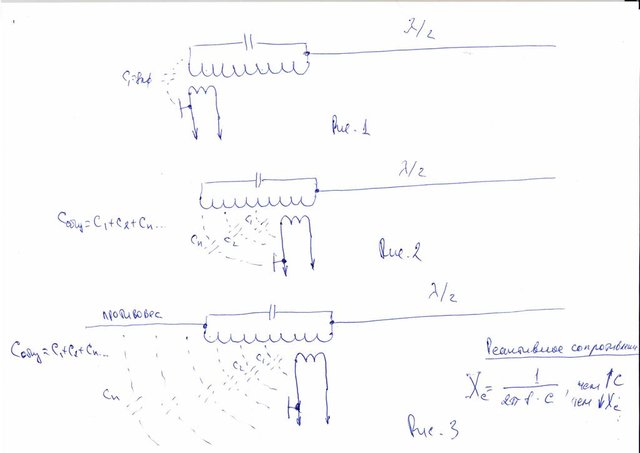 λ/2
C₁=
Рис. 1
λ/2
Cобщ=C₁+C₂+Cn...
C₁
C₂
Cn
Рис. 2
λ/2
противовес
Cобщ=C₁+C₂+Cn...
C₁
C₂
Cn
Реактивное сопротивлении
Xc = 1/(2π f · C), чем ↑C
чем ↓Xc
Рис. 3